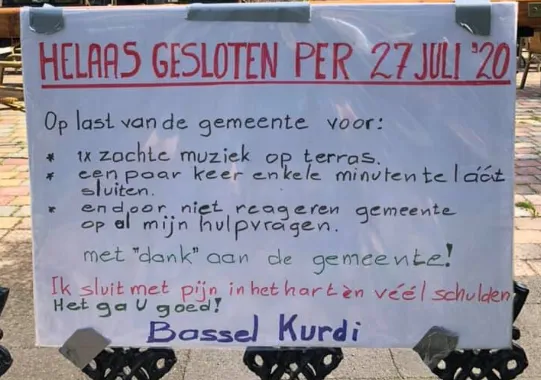 HELAAS GESLOTEN PER 27 JULI '20
Op last van de gemeente voor:
* 1x zachte muziek op terras.
* een paar keer enkele minuten te láát
sluiten.
* en door niet reageren gemeente
op al mijn hulpvragen.
met "dank" aan de gemeente!
Ik sluit met pijn in het hart èn véél schulden
Het ga U goed!
Bassel Kurdi